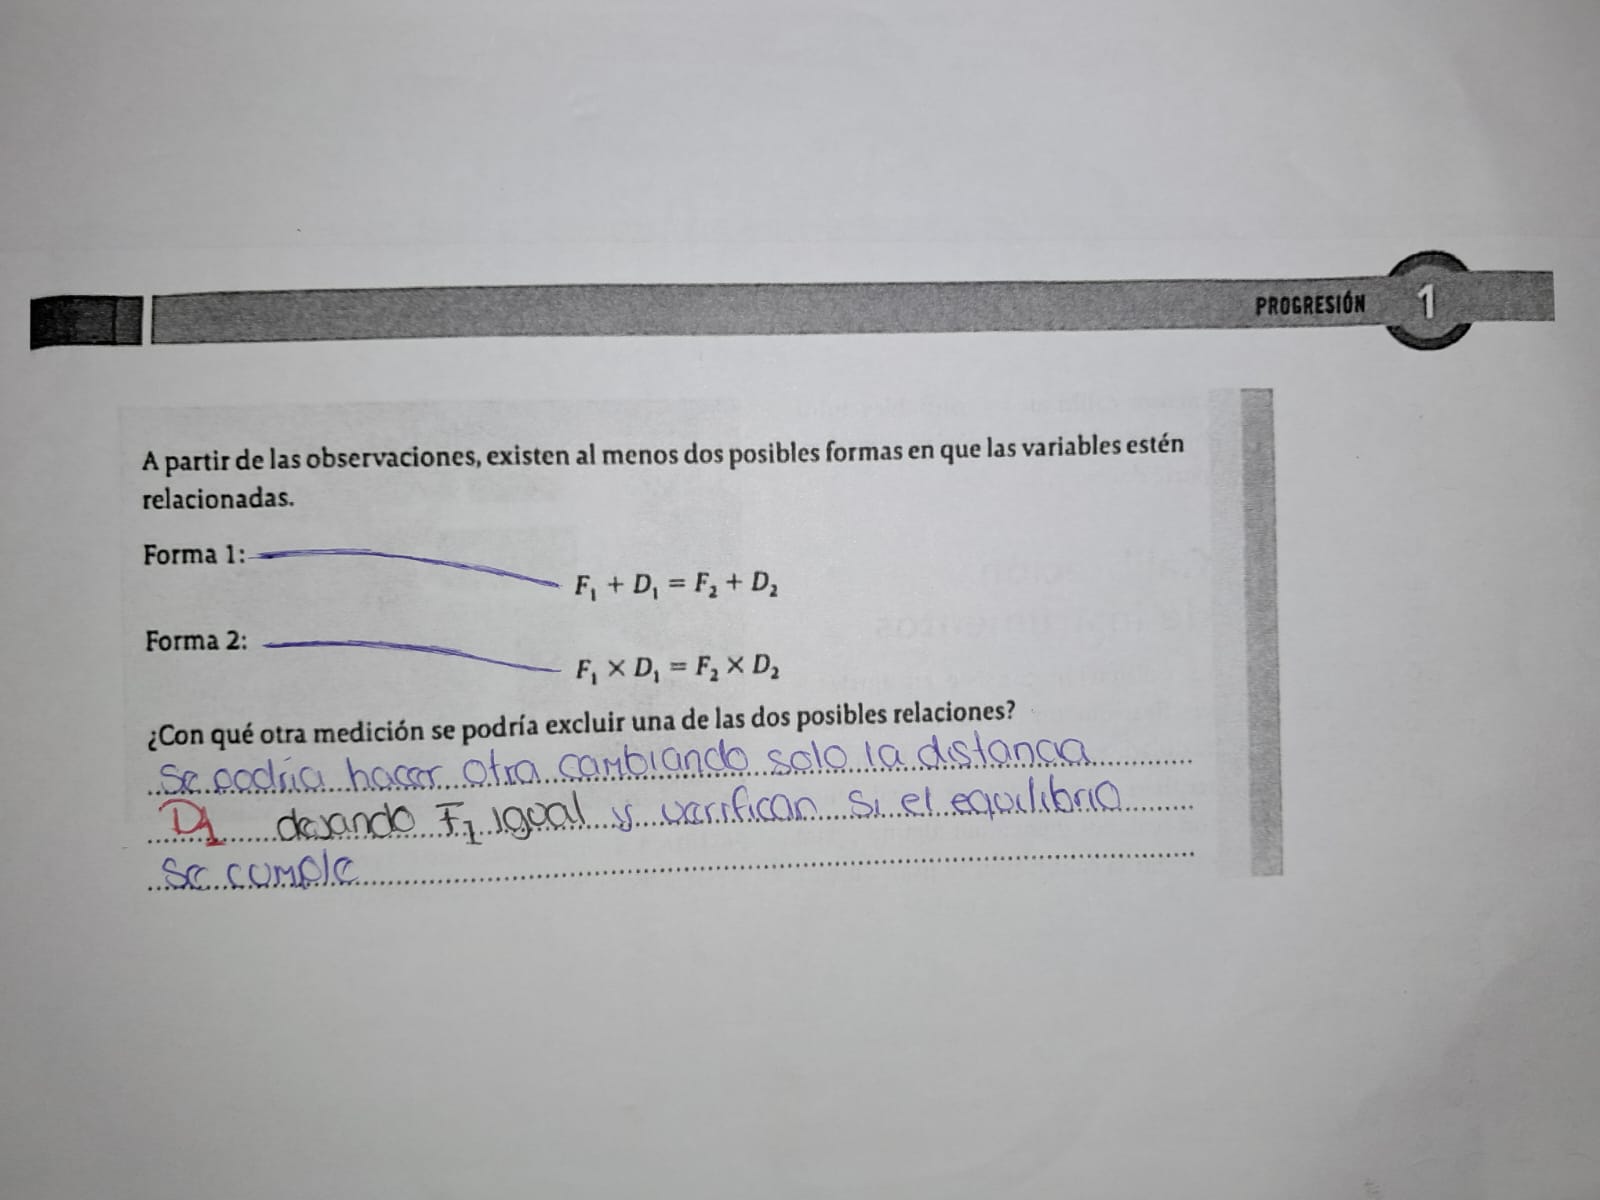 PROGRESIÓN 1
A partir de las observaciones, existen al menos dos posibles formas en que las variables estén
relacionadas.
Forma 1:
F₁ + D₁ = F₂ + D₂
Forma 2:
F₁ × D₁ = F₂ × D₂
¿Con qué otra medición se podría excluir una de las dos posibles relaciones?
Se podría hacer otra cambiando solo la distancia
D1 dejando F1 igual y verifican si el equilibrio
se cumple